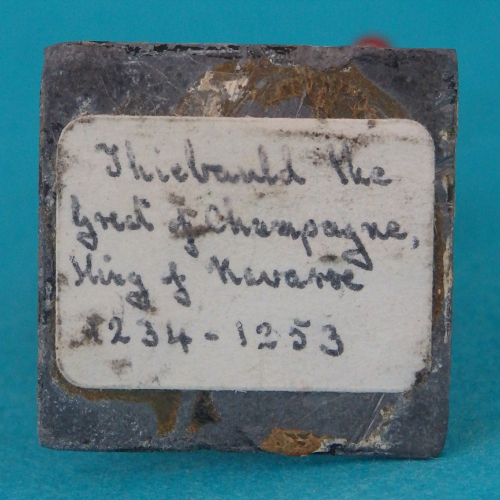 Thiebauld the
Great of Champagne,
King of Navarre
1234-1253